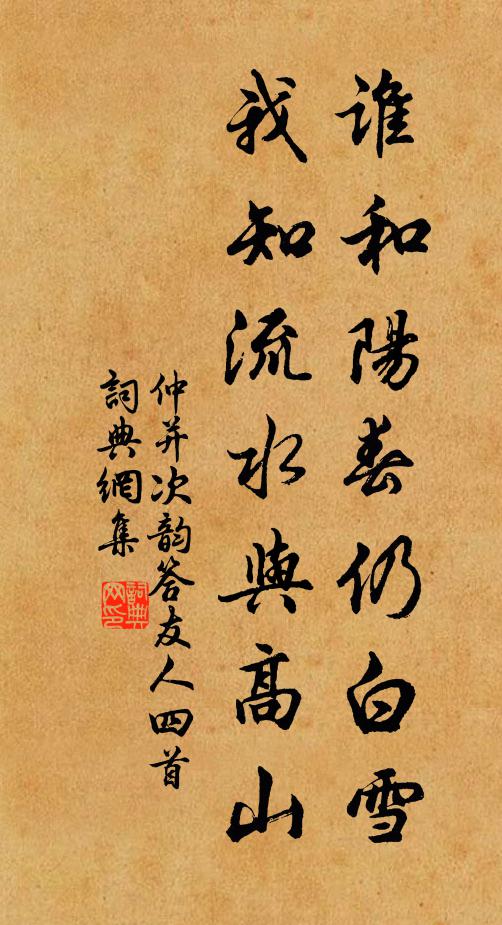 誰和陽春仍白雪
我知流水與高山
仲并次韵答友人四首
詞典網集
詞典
网印